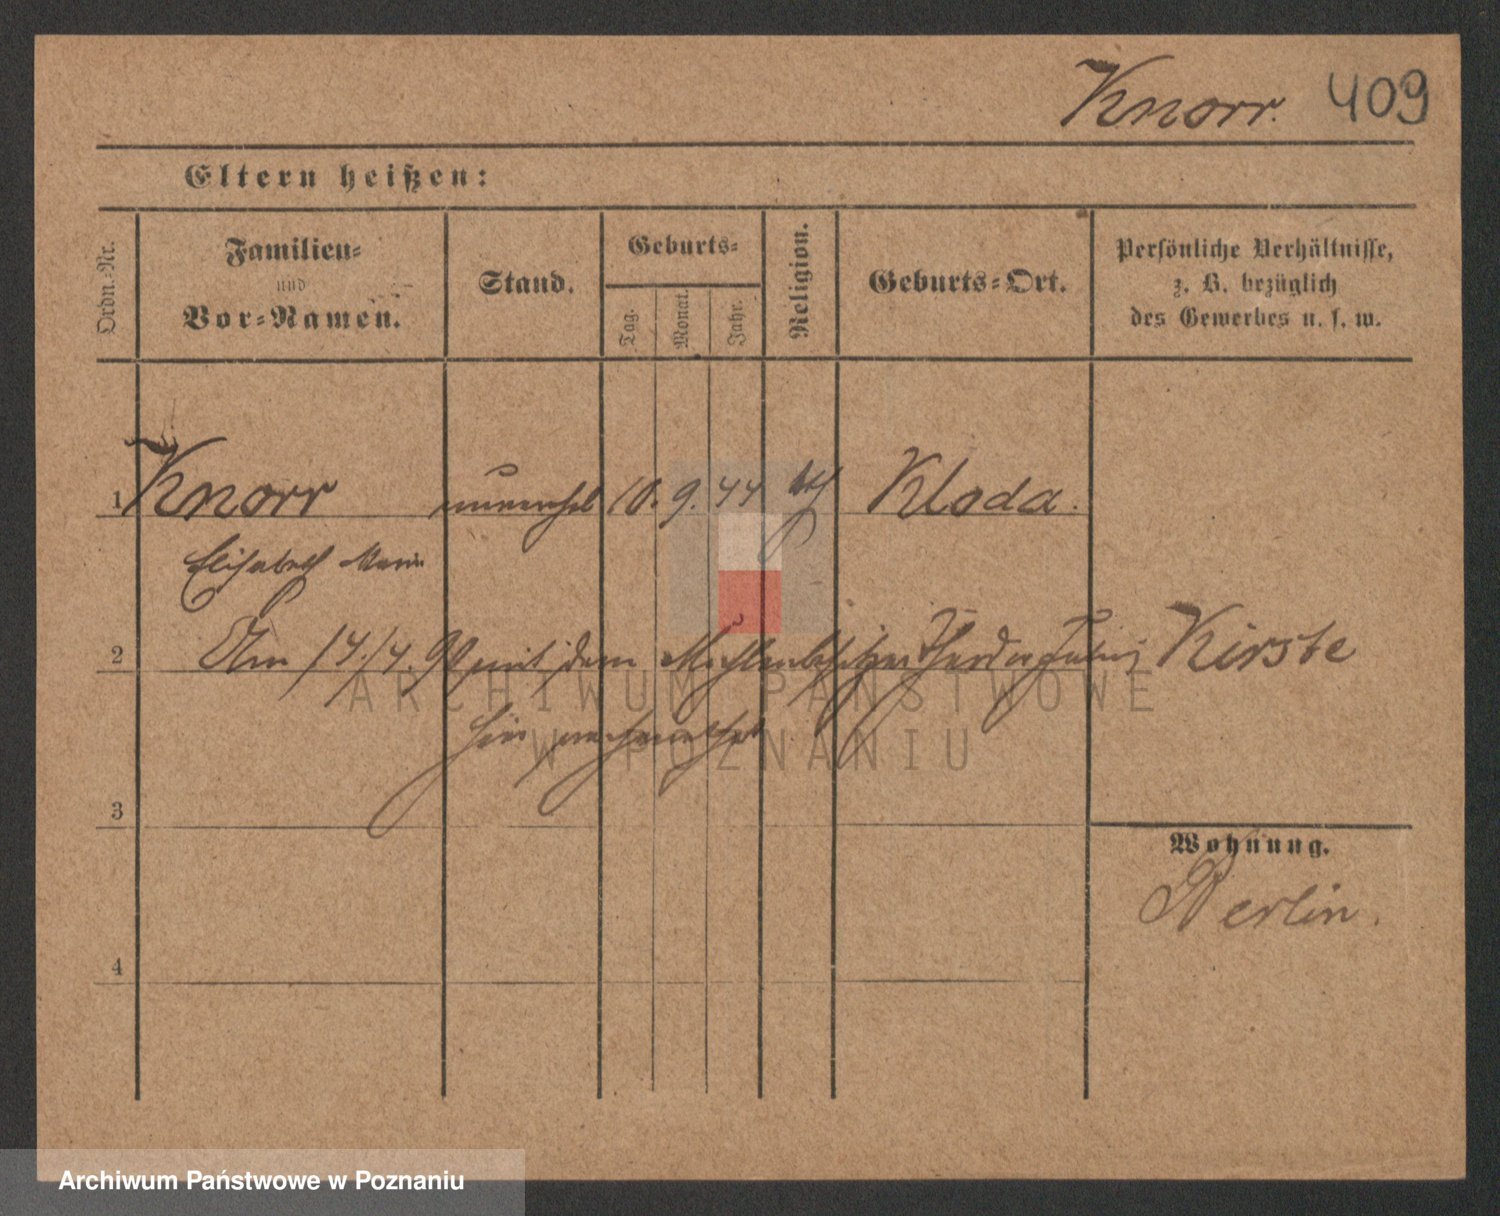 Knorr. 409
Eltern heißen:
Ordn.-Nr.
Familien-
und
Vor-Namen.
Stand.
Geburts-
Tag.
Monat.
Jahr.
Religion.
Geburts-Ort.
Persönliche Verhältnisse,
z. B. bezüglich
des Gewerbes u. s. w.
1 Knorr unverehel 10. 9. 44 Kloda.
Elisabeth Marie
2 Am 14/4. 90 mit dem Mühlenbesitzer Julius Kirste
hier verheirathet
3
Wohnung.
Berlin.
4
ARCHIWUM PAŃSTWOWE
W POZNANIU
Archiwum Państwowe w Poznaniu